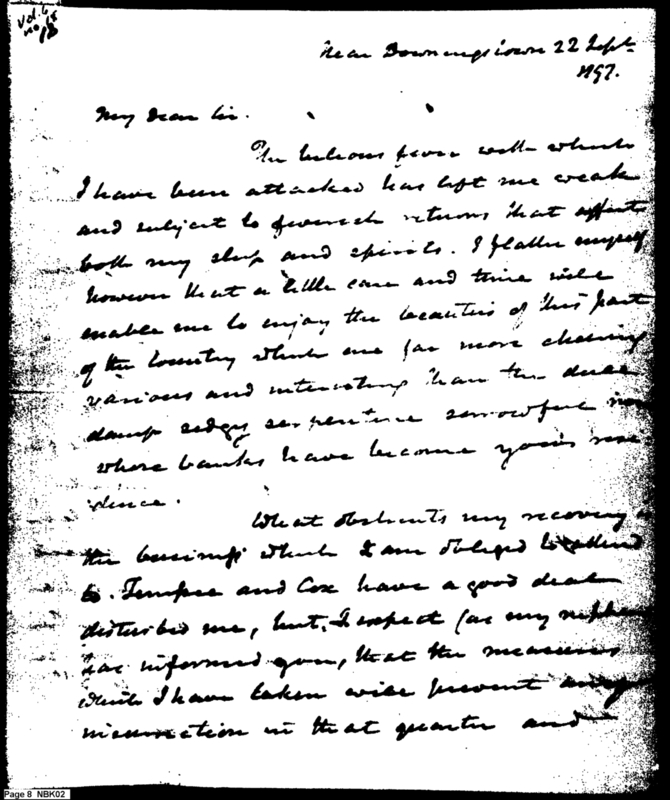 Vol. 6
no 15
18
Near Downingstown 22 Sept
1797.
My Dear Sir.
The bilious fever with which
I have been attacked has left me weak
and subject to feverish returns that affect
both my sleep and spirits. I flatter myself
however that a little care and time will
enable me to enjoy the beauties of this part
of the Country which are far more
various and interesting than the dull
damp sedgy serpentine sorrowful
whose banks have become your resi
dence.
What obstructs my recovery is
the business which I am obliged to attend
to. Tempie and Cox have a good deal
disturbed me, but, I expect (as my nephew
has informed you, that the measures
which I have taken will prevent any
insurrection in that quarter and
Page 8 NBK02